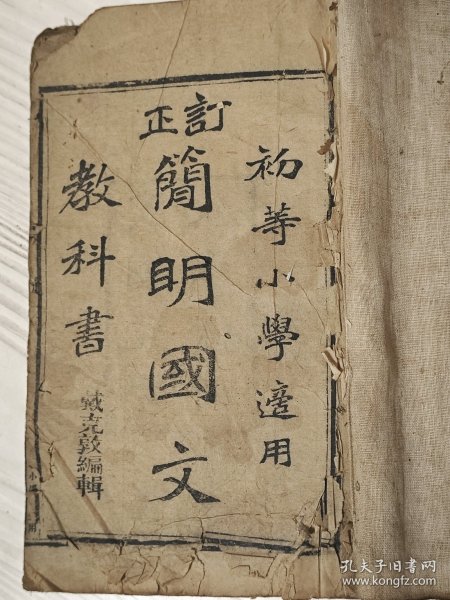 初等小學適用
訂正
簡明國文
教科書
戴克敦編輯
孔夫子旧书网
www.kongfz.com